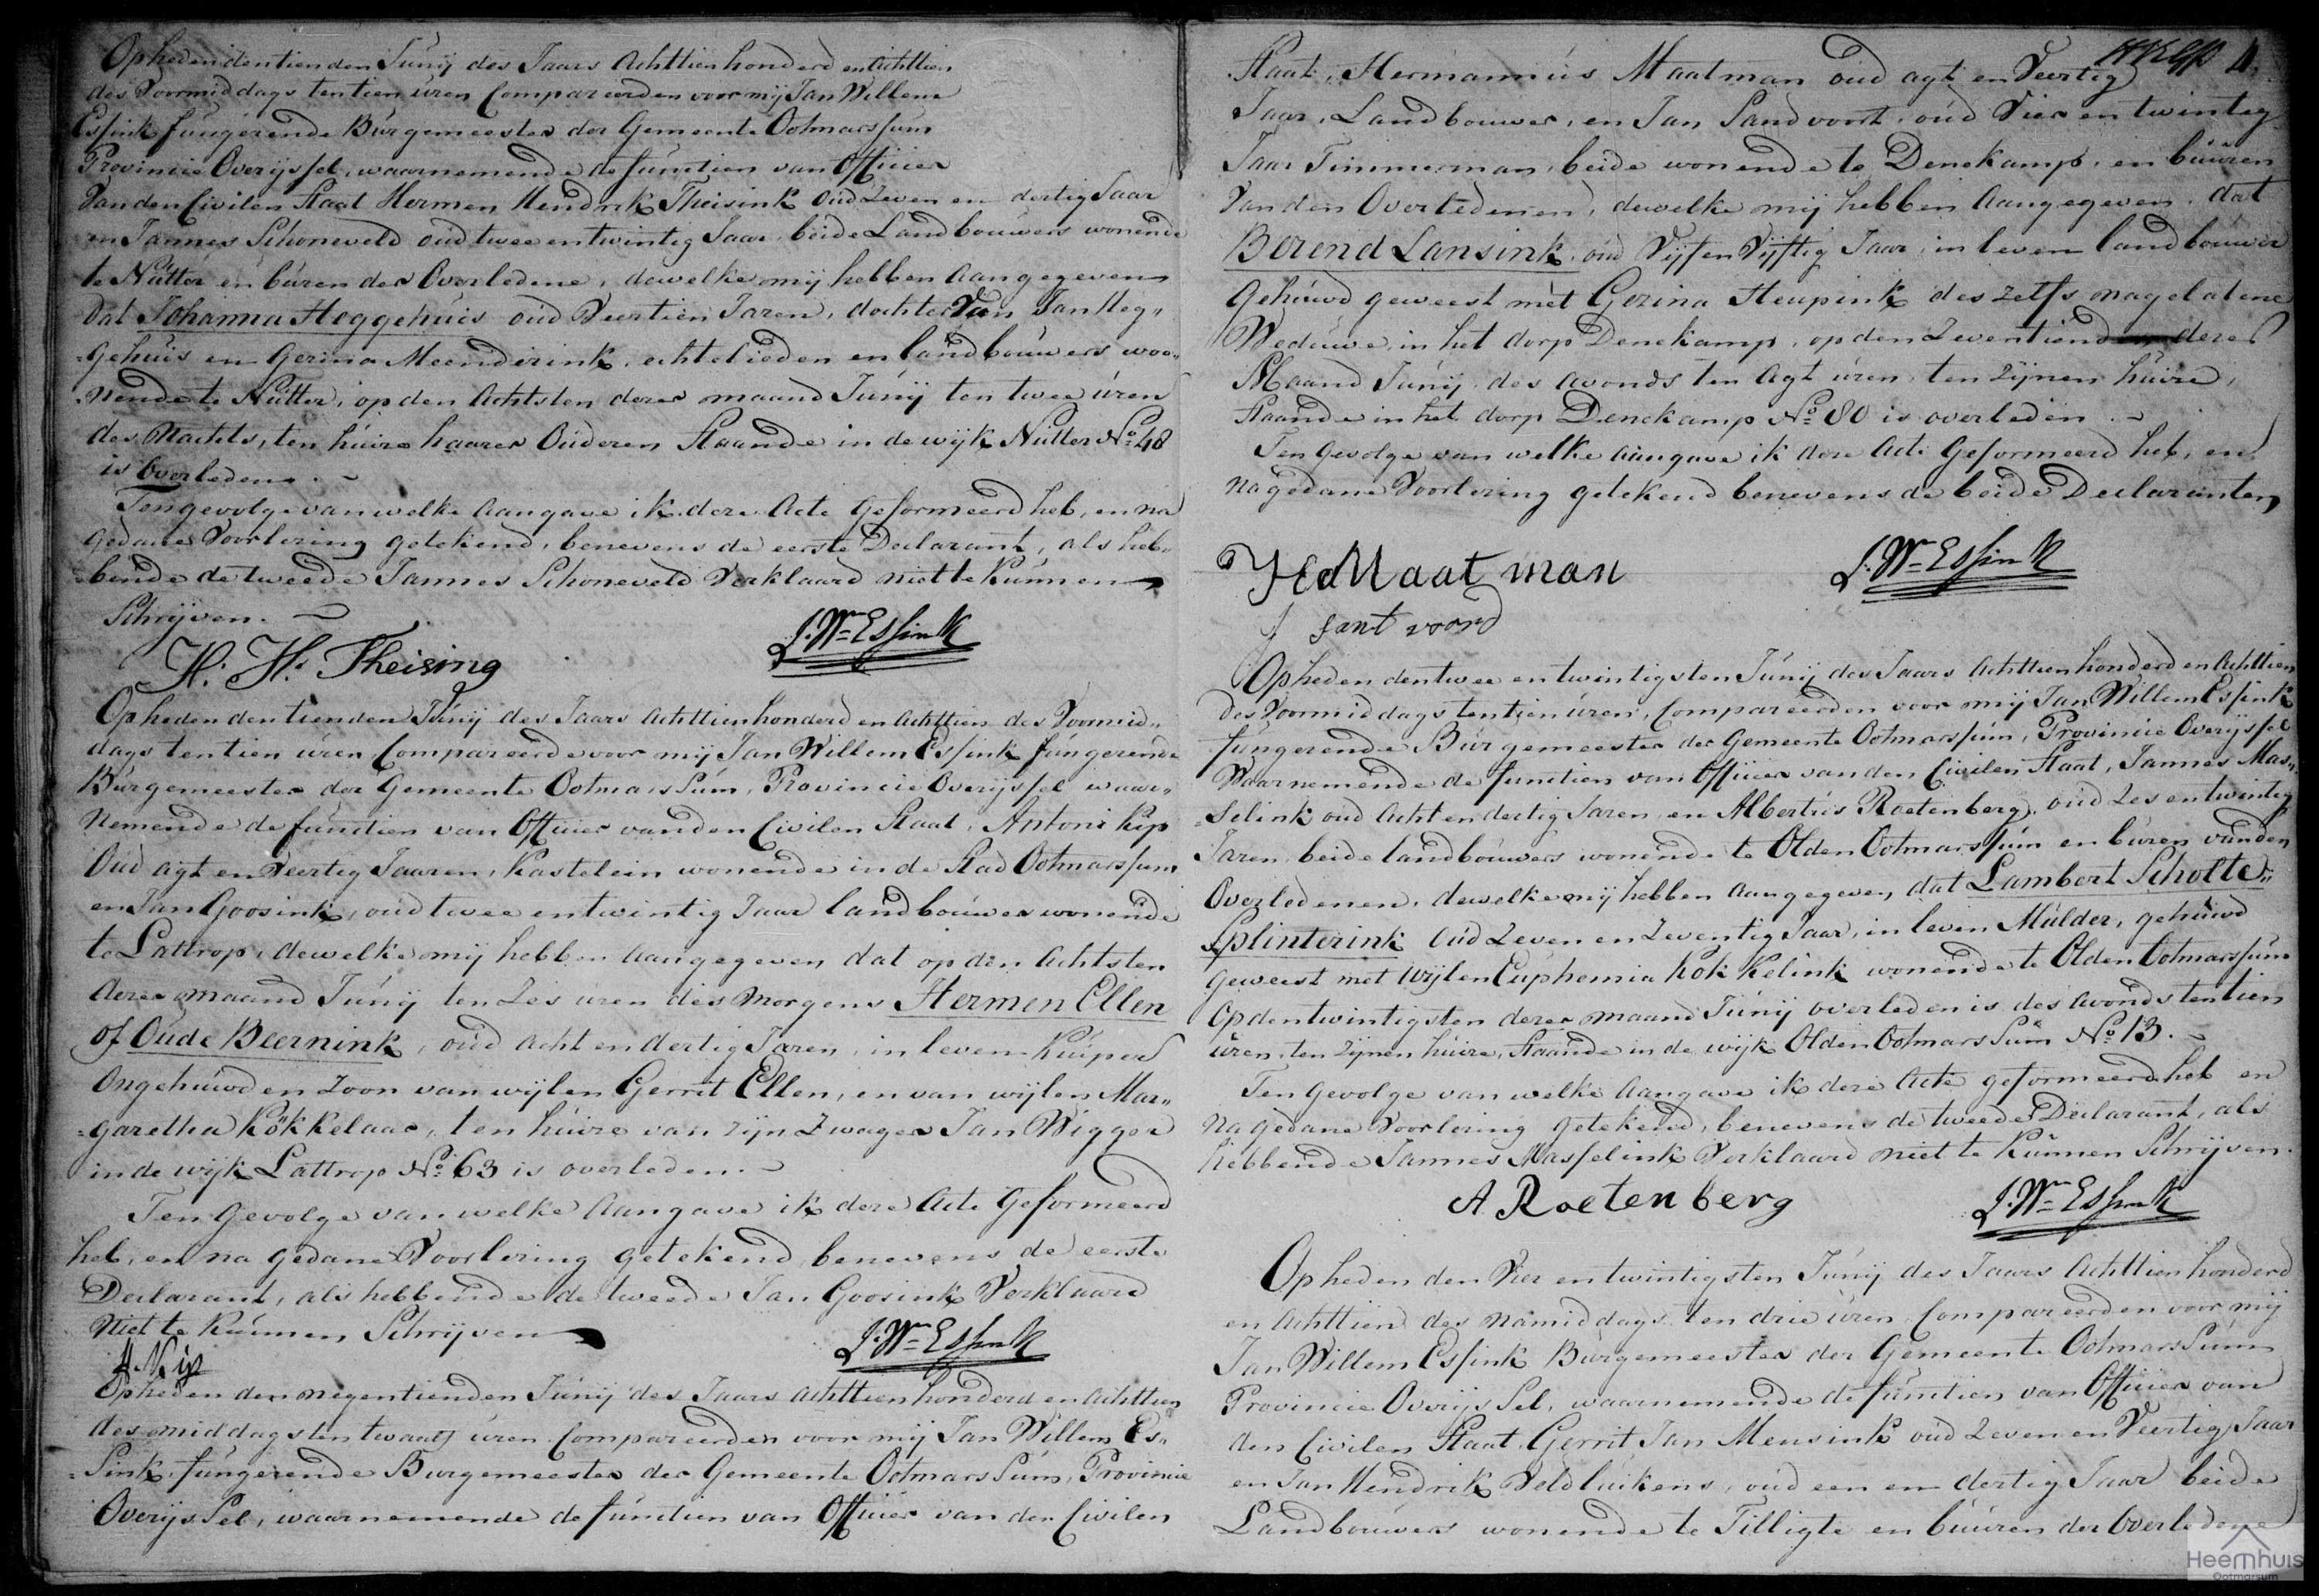 Op heden den tienden Junij des Jaars Achttien honderd en Achttien
des Voormiddags ten tien uren Compareerden voor mij Jan Willem
Essink fungerende Burgemeester der Gemeente Ootmarssum
Provincie Overijssel, waarnemende de functien van Officier
van den Civilen Staat Hermen Hendrik Theisink Oud Zeven en dertig Jaar
en Jannes Schoneveld oud twee en twintig Jaar, beide Landbouwers wonende
te Nutter en buren der Overledene, dewelke mij hebben Aangegeven
dat Johanna Heggehuis oud Veertien Jaren, dochter Van Jan Heg„
=gehuis en Gezina Meenderink, echtelieden en landbouwers woo„
nende te Nutter, op den Achtsten dezer maand Junij ten twee uren
des Nachts, ten huize haarer Ouderen Staande in de wijk Nutter No 48
is Overleden. ~
Ten gevolge van welke Aangave ik deze Acte Geformeerd heb, en na
gedane Voorlezing getekend, benevens de eerste Declarant, als heb„
bende de tweede Jannes Schoneveld Verklaard niet te Kunnen
Schrijven. ~
J. Wm Essink
H. H. Theising
Op heden den tienden Junij des Jaars Achttien honderd en Achttien des Voormid„
dags ten tien uren Compareerde voor mij Jan Willem Essink fungerende
Burgemeester der Gemeente Ootmarssum, Provincie Overijssel waar„
nemende de functien van Officier van den Civilen Staat, Antoni Kip
Oud agt en Veertig Jaaren, Kastelein wonende in de Stad Ootmarssum
en Jan Goosink, oud twee en twintig Jaar landbouwer wonende
te Lattrop, dewelke mij hebben Aangegeven dat op den Achtsten
dezer maand Junij ten Zes uren des Morgens Hermen Ellen
of Oude Beernink, oud Acht en dertig Jaren, in leven Kuiper
Ongehuwd en Zoon van wijlen Gerrit Ellen, en van wijlen Mar„
=garetha Kökkelaar, ten huize van zijn Zwager Jan Wigger
in de wijk Lattrop No 63 is overleden. ~
Ten Gevolge van welke Aangave ik deze Acte Geformeerd
heb, en na gedane Voorlezing getekend, benevens de eerste
Declarant, als hebbende de tweede Jan Goosink Verklaard
Niet te Kunnen Schrijven
J. Wm Essink
A. Kip
Op heden den negentienden Junij des Jaars Achttien honderd en Achttien
des middags ten twaalf uren Compareerden voor mij Jan Willem Es„
=sink, fungerende Burgemeester der Gemeente Ootmarssum, Provincie
Overijssel, waarnemende de functien van Officier van den Civilen
4.
Staat, Hermannus Maatman oud agt en Veertig
Jaar, Landbouwer, en Jan Sandvoort, oud Vier en twintig
Jaar Timmerman, beide wonende te Denekamp, en buuren
Van den Overledenen, dewelke mij hebben Aangegeven, dat
Berend Lansink, oud Vijf en Vijftig Jaar, in leven landbouwer
Gehuwd geweest met Gezina Heupink des zelfs nagelatene
Weduwe, in het dorp Denekamp, op den Zeventiend dezer
Maand Junij des Avonds ten Agt uren, ten zijnen huize,
Staande in het dorp Denekamp No 80 is overleden ~
Ten Gevolge van welke Aangave ik deze Acte Geformeerd heb, en
na gedane Voorlezing getekend benevens de beide Declaranten
J. Wm Essink
H Maatman
J sant voord
Op heden den twee en twintigsten Junij des Jaars Achttien honderd en Achttien
des Voormiddags ten tien uren, Compareerden voor mij Jan Willem Essink
fungerende Burgemeester der Gemeente Ootmarssum, Provincie Overijssel
Waarnemende de functien van Officier van den Civilen Staat, Jannes Mas„
=selink oud Acht en dertig Jaren, en Albertus Roetenberg, oud Zes en twintig
Jaren, beide landbouwers wonende te Olden Ootmarssum en buren van den
Overledenen, dewelke mij hebben Aangegeven, dat Lambert Scholte„
Splinterink Oud Zeven en Zeventig Jaar, in leven Mulder, gehuwd
geweest met wijlen Euphemia Kok Kelink wonende te Olden Ootmarssum
Op den twintigsten dezer maand Junij overleden is des Avonds ten tien
uren, ten zijnen huize, Staande in de wijk Olden Ootmarssum No 13. ~
Ten Gevolge van welke Aangave ik deze Acte geformeerd heb en
na gedane Voorlezing getekend, benevens de tweede Declarant, als
hebbende Jannes Masselink Verklaard niet te Kunnen Schrijven.
A Roetenberg
J. Wm Essink
Op heden den Vier en twintigsten Junij des Jaars Achttien honderd
en Achttien des Namiddags ten drie uren Compareerden voor mij
Jan Willem Essink Burgemeester der Gemeente Ootmarssum
Provincie Overijssel, waarnemende de functien van Officier van
den Civilen Staat, Gerrit Jan Mensink oud Zeven en Veertig Jaar
en Jan Hendrik Veldluikens, oud een en dertig Jaar beide
Landbouwers wonende te Tilligte en buuren der Overledene
Heemhuis
Ootmarsum